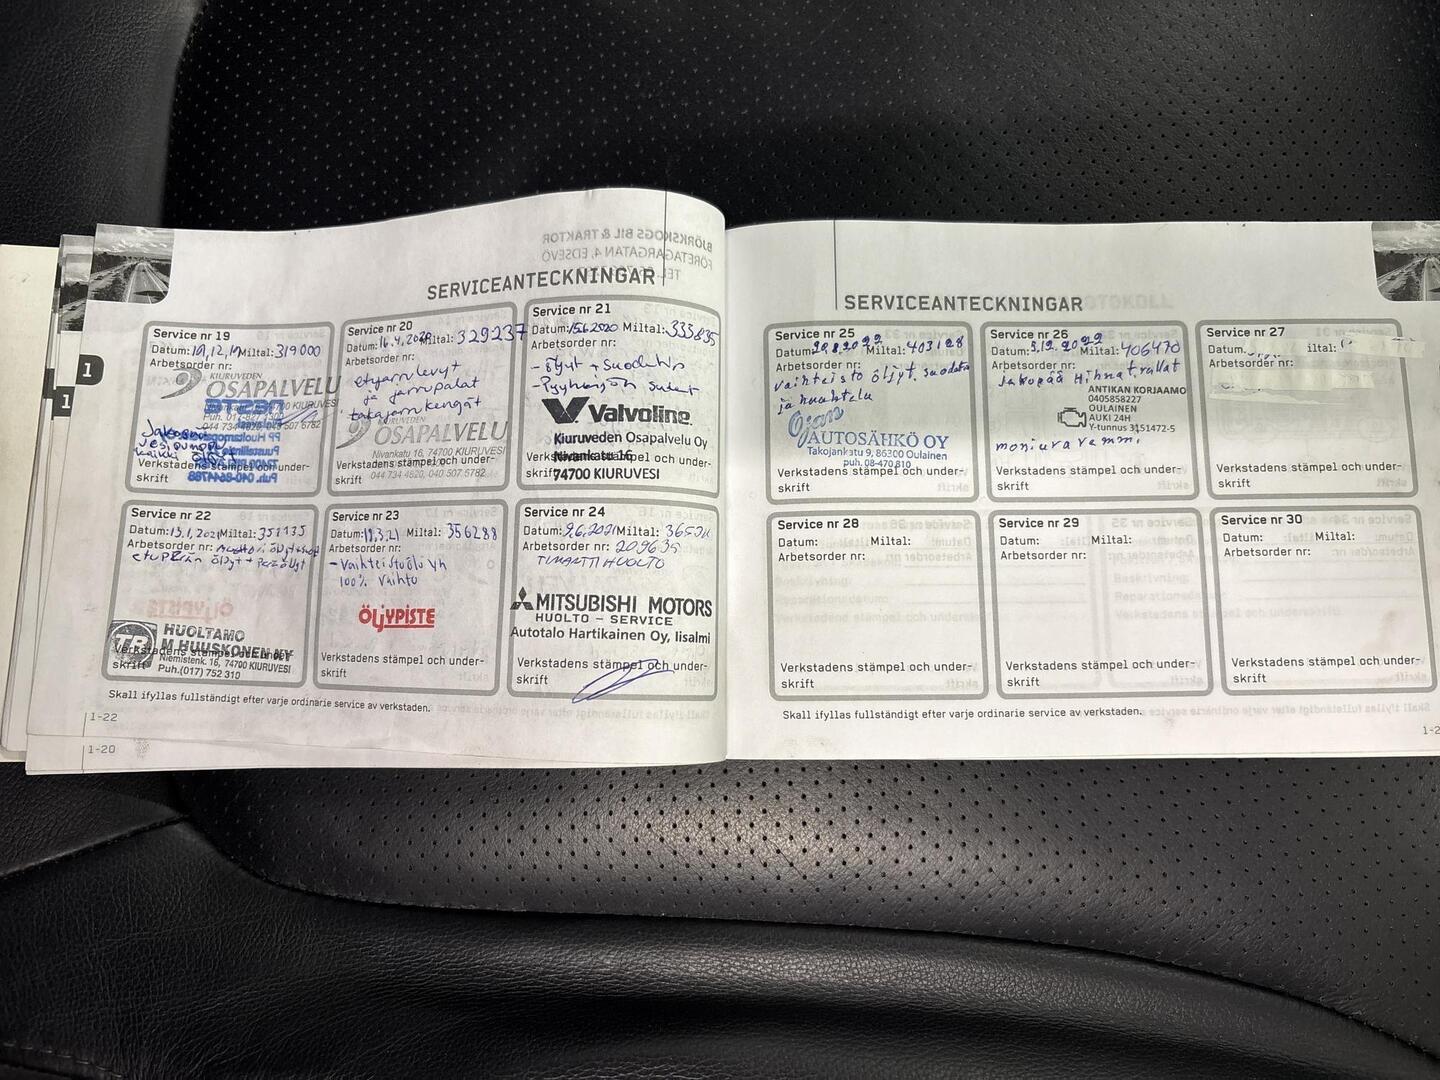 SERVICEANTECKNINGAR
Service nr 19
Datum: 19.12.19 Miltal: 319000
Arbetsorder nr:
KIURUVEDEN
OSAPALVELU
Verkstadens stämpel och under-
skrift
Service nr 20
Datum: 16.4.2020 Miltal: 329237
Arbetsorder nr:
etujarrulevyt
ja jarrupalat
takajarrukengät
KIURUVEDEN
OSAPALVELU
Nivankatu 16, 74700 KIURUVESI
044 734 4820, 040 507 6782
Verkstadens stämpel och under-
skrift
Service nr 21
Datum: 15.6.2020 Miltal: 333835
Arbetsorder nr:
- öljyt + suodatin
Valvoline
Kiuruveden Osapalvelu Oy
Nivankatu 16
74700 KIURUVESI
Service nr 22
Datum: 13.1.2021 Miltal:
Arbetsorder nr:
HUOLTAMO
M HUUSKONEN KY
Niemistenk. 16, 74700 KIURUVESI
Puh.(017) 752 310
Service nr 23
Datum: Miltal: 356288
Arbetsorder nr:
- Vaihteistoöljyn
100% vaihto
ÖLJYPISTE
Verkstadens stämpel och under-
skrift
Service nr 24
Datum: 9.6.2021 Miltal:
Arbetsorder nr: 209635
TIMANTTIHUOLTO
MITSUBISHI MOTORS
HUOLTO - SERVICE
Autotalo Hartikainen Oy, Iisalmi
Verkstadens stämpel och under-
skrift
Skall ifyllas fullständigt efter varje ordinarie service av verkstaden.
1-22
1-20
1
1
SERVICEANTECKNINGAR
Service nr 25
Datum: 29.8.2022 Miltal: 403128
Arbetsorder nr:
vaihteisto öljyt. suodatin
ja huuhtelu
Ojan
AUTOSÄHKÖ OY
Takojankatu 9, 86300 Oulainen
puh. 08-470 810
Verkstadens stämpel och under-
skrift
Service nr 26
Datum: 5.12.2022 Miltal: 406470
Arbetsorder nr:
Jakopää Hihna trullat
ANTIKAN KORJAAMO
0405858227
OULAINEN
AUKI 24H
Y-tunnus 3151472-5
moniura remmi
Verkstadens stämpel och under-
skrift
Service nr 27
Datum: iltal:
Arbetsorder nr:
Verkstadens stämpel och under-
skrift
Service nr 28
Datum: Miltal:
Arbetsorder nr:
Verkstadens stämpel och under-
skrift
Service nr 29
Datum: Miltal:
Arbetsorder nr:
Verkstadens stämpel och under-
skrift
Service nr 30
Datum: Miltal:
Arbetsorder nr:
Verkstadens stämpel och under-
skrift
Skall ifyllas fullständigt efter varje ordinarie service av verkstaden.